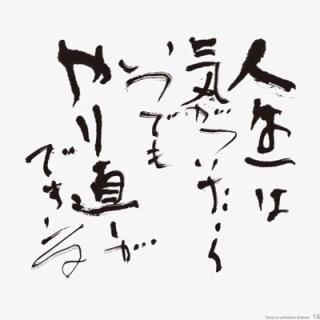 人生は
気がついたら
いつでも
やり直しが
できる
18